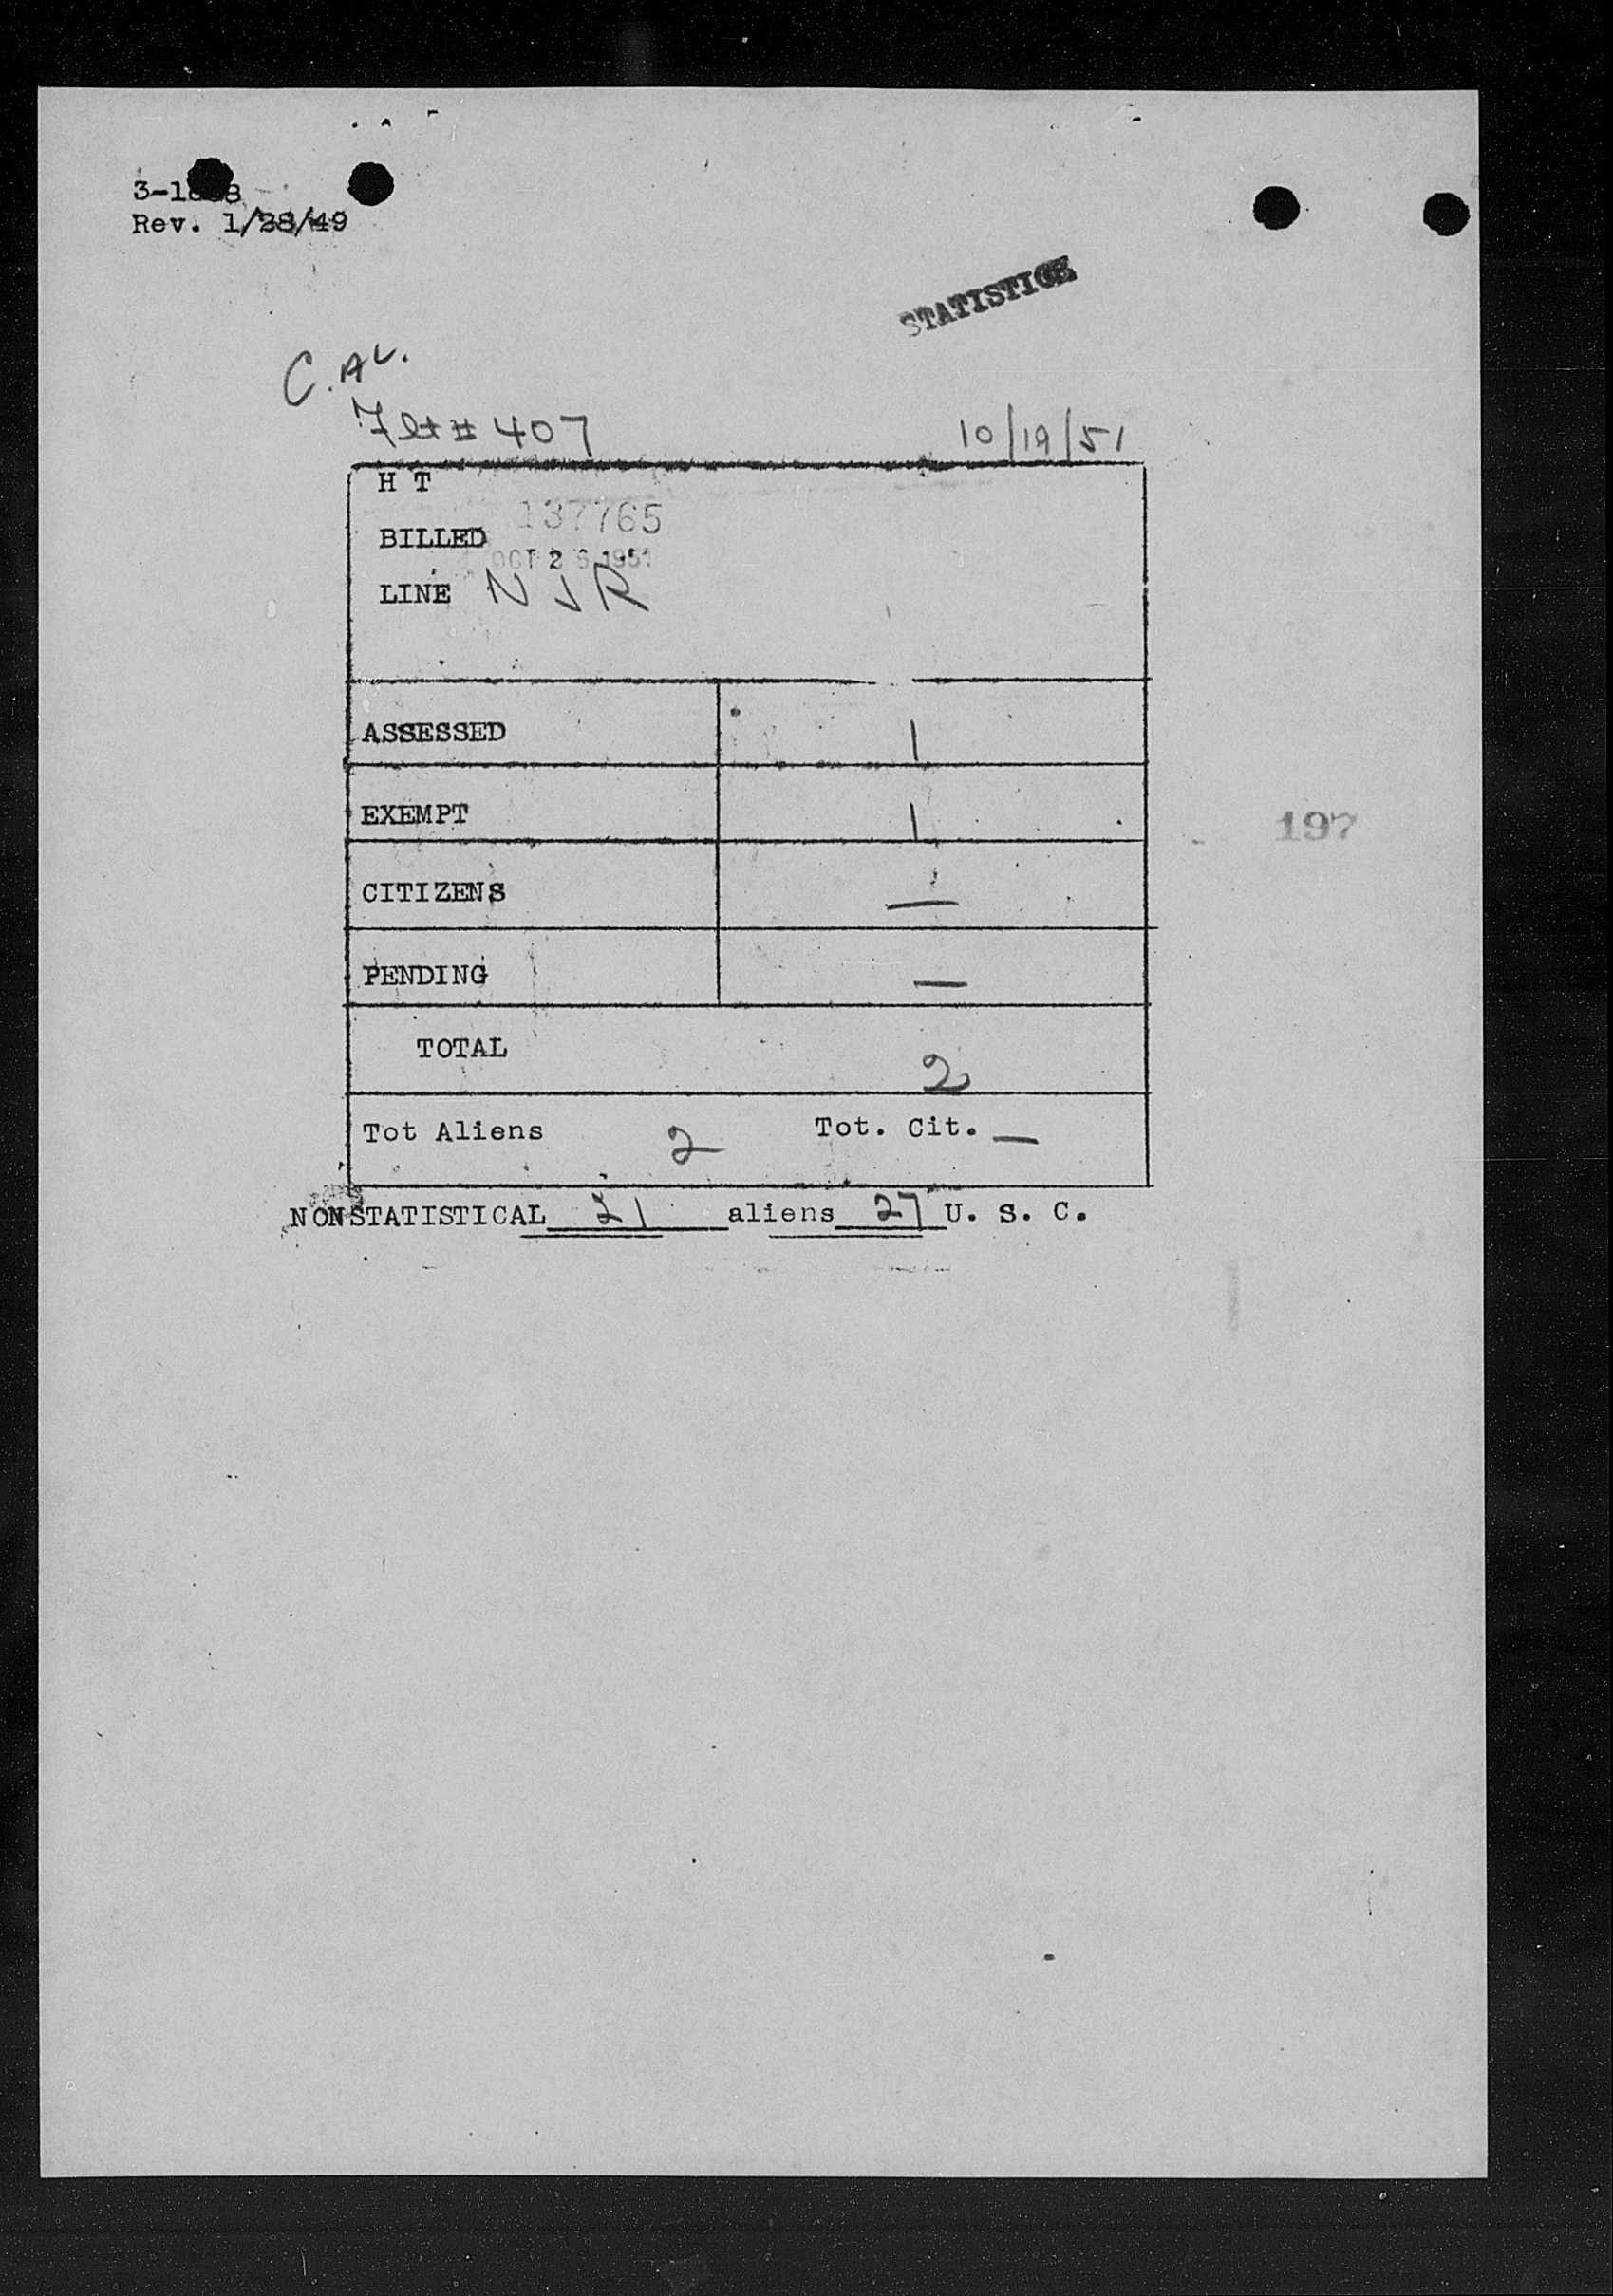 Rev. 1/28/49
STATISTICS
C. A L.
Flt # 407 10/19/51
H T
137765
BILLED
OCT 2 6 1951
LINE N J R
ASSESSED 1
EXEMPT 1
197
CITIZENS —
PENDING —
TOTAL 2
Tot Aliens 2 Tot. Cit. —
NONSTATISTICAL 21 aliens 27 U. S. C.